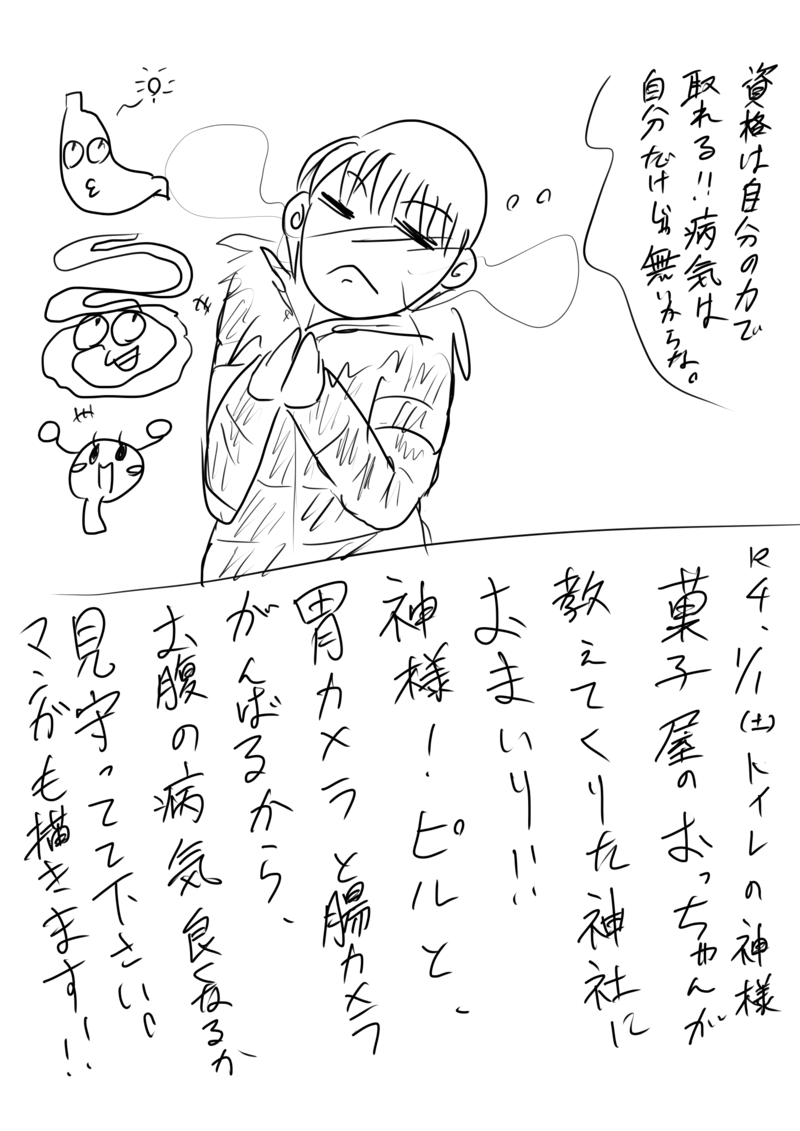 資格は自分の力で
取れる!!病気は
自分だけじゃ無りからな。
R4、1/1(土)トイレの神様
菓子屋のおっちゃんが
教えてくりた神社に
おまいり!!
神様!ピルと、
胃カメラと腸カメラ
がんばるから、
お腹の病気良くなるか
見守ってて下さい。
マンガも描きます!!